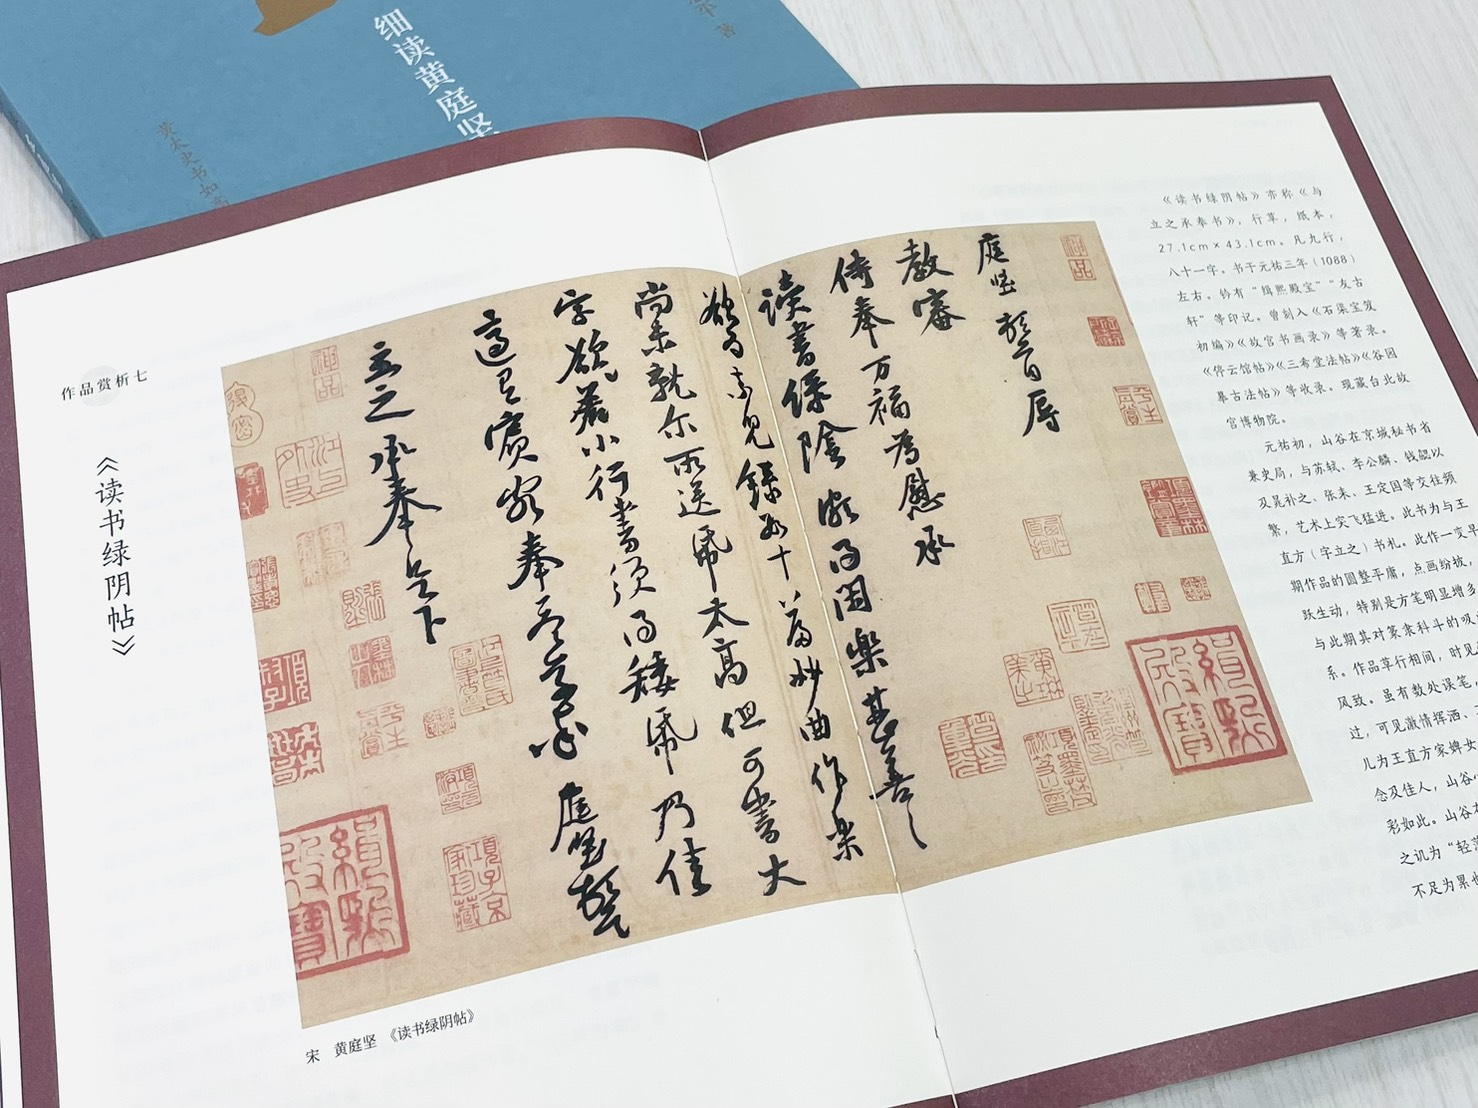 细读黄庭坚
著
黄太史书如高
作品赏析七
《读书绿阴帖》
庭堅頓首辱
教審
侍奉万福為慰承
讀書緑陰頗得閑樂甚善〃
欲為素兒錄數十篇妙曲作樂
尚未就尔所送紙太高但可書大
字欲著小行書須得矮紙乃佳
適有賓客奉答草率庭堅頓首
立之承奉足下
緝熙殿寶
平生真賞
項子京家珍藏
宋 黄庭坚 《读书绿阴帖》
《读书绿阴帖》亦称《与
立之承奉书》，行草，纸本，
27.1cm×43.1cm。凡九行，
八十一字。书于元祐三年（1088）
左右。钤有“缉熙殿宝”“友古
轩”等印记。曾刻入《石渠宝笈
初编》《故宫书画录》等著录。
《停云馆帖》《三希堂法帖》《谷园
摹古法帖》等收录。现藏台北故
宫博物院。
元祐初，山谷在京城秘书省
兼史局，与苏轼、李公麟、钱勰以
及晁补之、张耒、王定国等交往频
繁，艺术上突飞猛进。此书为与王
直方（字立之）书札。此作一变早
期作品的圆整平庸，点画纷披，
跃生动，特别是方笔明显增多
与此期其对篆隶科斗的吸
系。作品草行相间，时见
风致。虽有数处误笔，
过，可见激情挥洒、
儿为王直方家婢女
念及佳人，山谷
彩如此。山谷
之讥为“轻
不足为累也